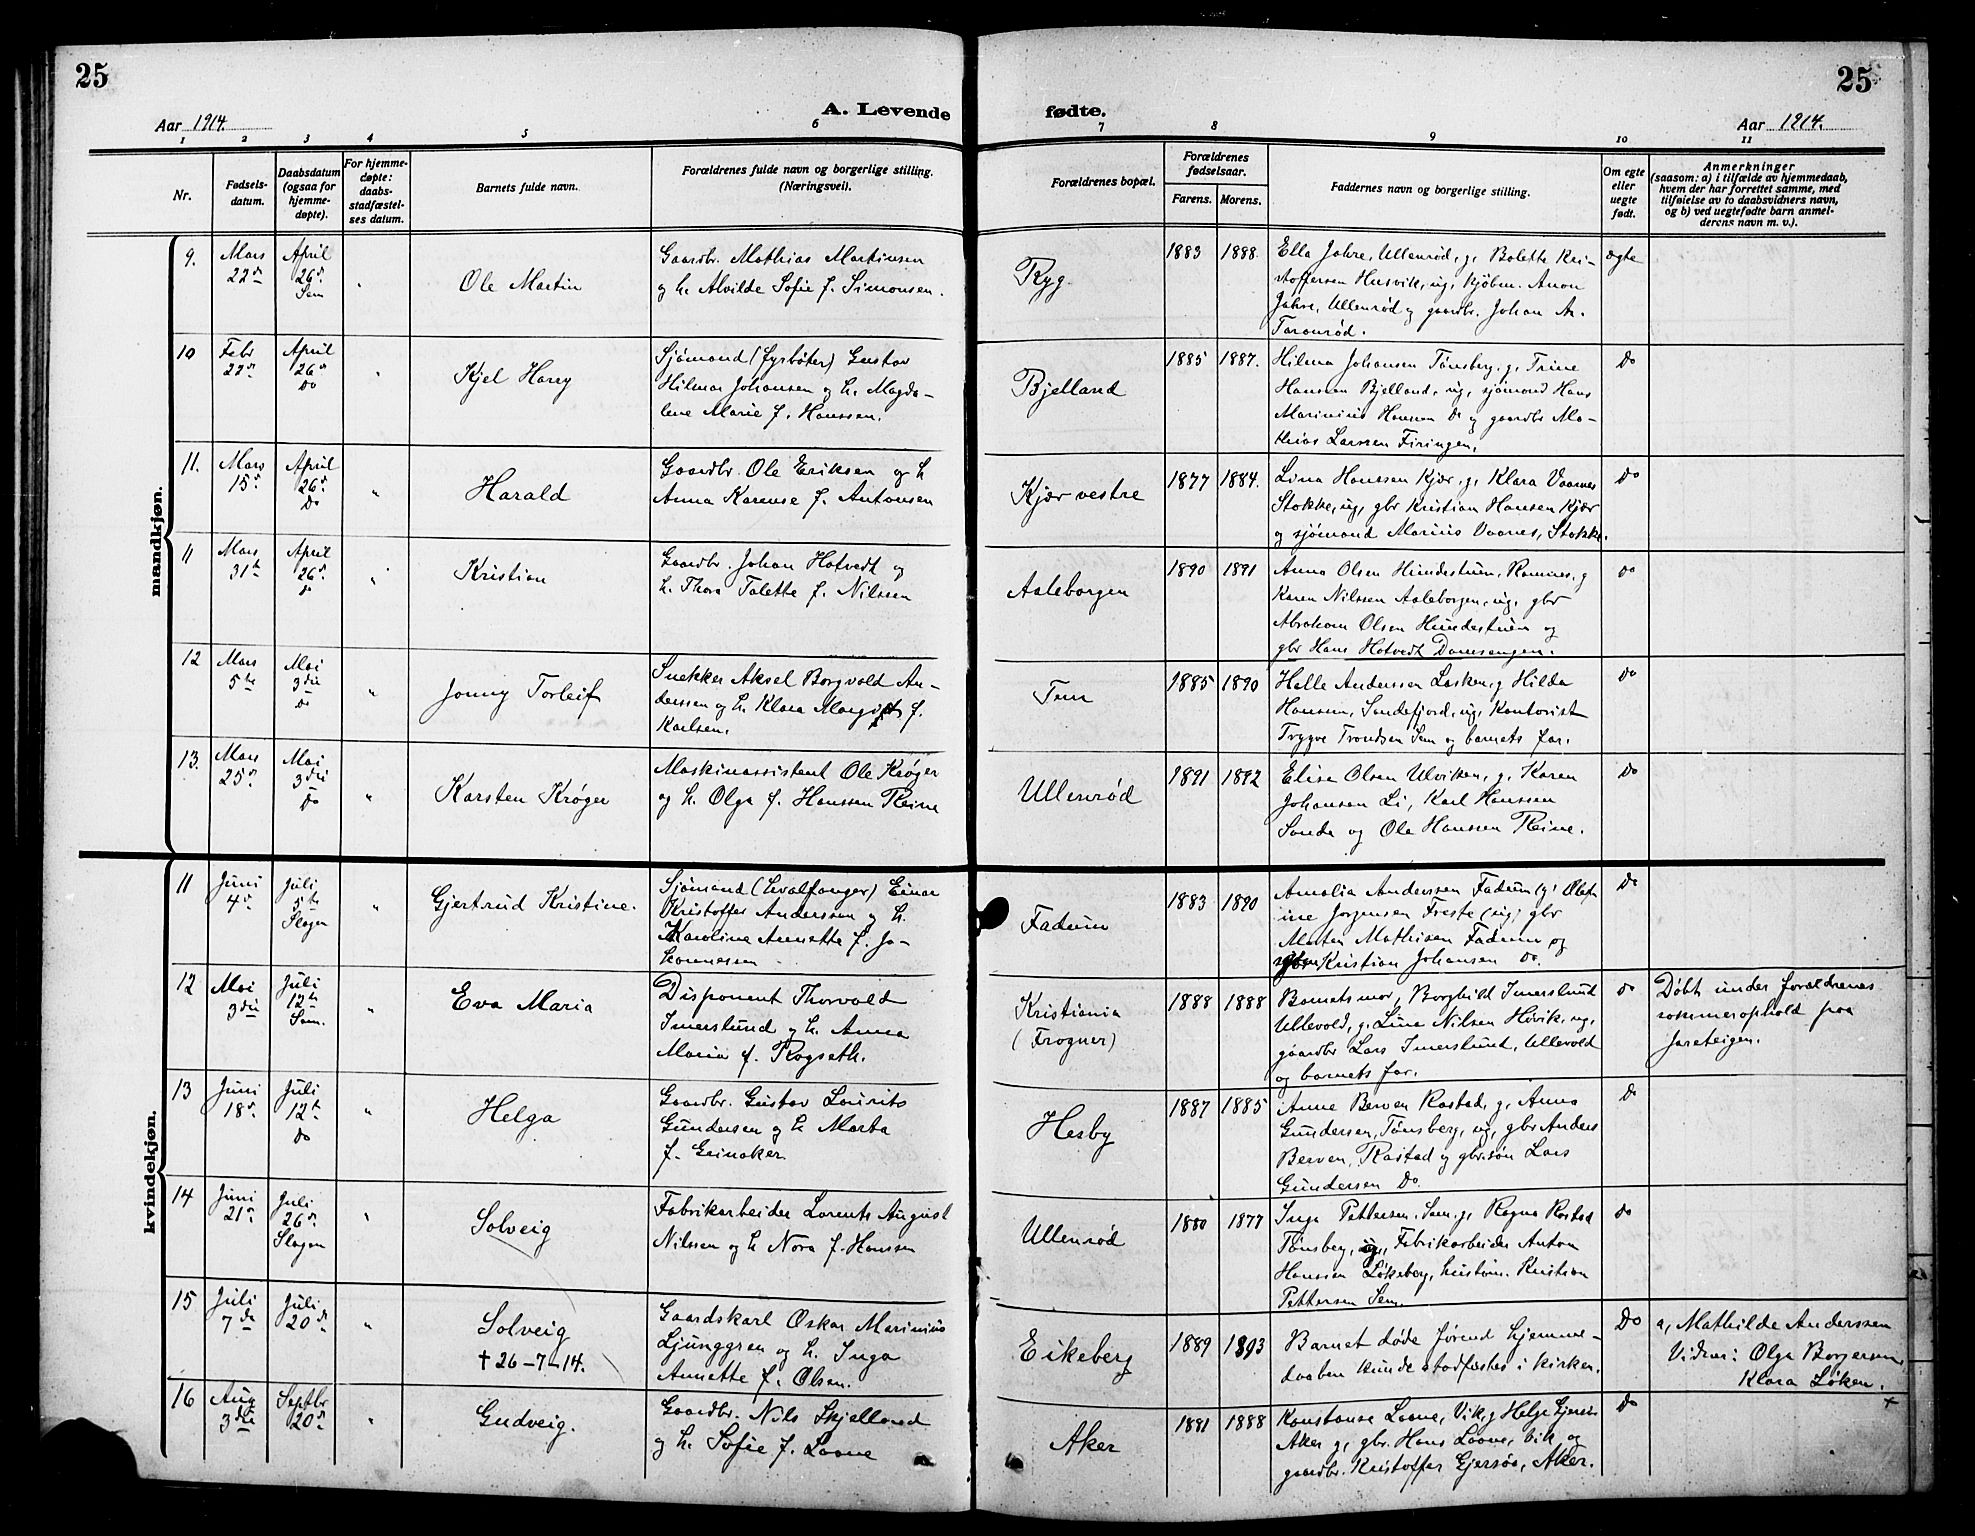 25
25
A. Levende fødte.
Aar 1914.
Aar 1914.
1 2 3 4 5 6 7 8 9 10 11
Nr.
Fødsels-
datum.
Daabsdatum
(ogsaa for
hjemme-
døpte).
For hjemme-
døpte:
daabs-
stadfæstel-
ses datum.
Barnets fulde navn.
Forældrenes fulde navn og borgerlige stilling.
(Næringsvei).
Forældrenes bopæl.
Forældrenes
fødselsaar.
Farens. Morens.
Faddernes navn og borgerlige stilling.
Om egte
eller
uegte
født.
Anmerkninger
(saasom: a) i tilfælde av hjemmedaab,
hvem der har forrettet samme, med
tilføielse av to daabsvidners navn,
og b) ved uegtefødte barn anmel-
derens navn m. v.).
mandkjøn.
9. Mars 22de April 26de Sem " Ole Martin
Gaardbr. Mathias Martinsen
og h. Alvilde Sofie f. Simonsen.
Ryg. 1883 1888. ægte
Ella Jahre, Ullenrød, g, Bolette Kri-
stoffersen Husvik, ug, kjøbm. Anon
Jahre, Ullenrød og gaardbr. Johan A.
Taranrød.
10 Febr 22de April 26de Do " Kjel Harry
Sjømand (fyrbøter) Gustav
Hilmar Johansen og h. Magda-
lene Marie f. Hanssen.
Bjelland 1885 1887. Do
Hilma Johansen Tønsberg, g, Trine
Hansen Bjelland, ug, sjømand Hans
Marinius Hansen Do og gaardbr Ma-
thias Larssen Firingen.
11. Mars 15de April 26de Do " Harald
Gaardbr. Ole Eriksen og h
Anna Karense f. Antonsen
Kjær vestre 1877 1884. Do
Lina Hanssen Kjær, g, Klara Vaarnes
Stokke, ug, gbr Kristian Hansen Kjær
og sjømand Marius Vaarnes, Stokke.
11 Mars 31te April 26de do " Kristian
Gaardbr. Johan Hotvedt og
h. Thora Talette f. Nilssen
Aaleborgen 1890 1891 Do
Anna Olsen Hundestuen, Ramnes, g
Karen Nilssen Aaleborgen, ug, gbr
Abraham Olsen Hundestuen og
gbr Hans Hotvedt Damsengen.
12 Mars 5te Mai 3die do " Jonny Torleif
Snekker Aksel Borgvald An-
derssen og h. Klara Margit f.
Karlsen.
Tem 1885 1890 Do
Helle Anderssen Lasken, g Hilda
Hansen, Sandefjord, ug, Kontorist
Trygve Trondsen Sem og barnets far.
13. Mars 25de Mai 3die Do " Karsten Krøger
Maskinassistent Ole Krøger
og h. Olga f. Hanssen Reine
Ullenrød 1891 1892 Do
Elise Olsen Ulviken, g, Karen
Johansen Li, Karl Hanssen
Sande og Ole Hanssen Reine.
kvindekjøn.
11 Juni 4de Juli 5te Slagen " Gjertrud Kristine.
Sjømand (hvalfanger) Einar
Kristoffer Anderssen og h.
Karoline Annette f. Jo-
hannessen
Fadum 1883 1890 Do
Amalia Anderssen Fadum (g) Olef
ine Jørgensen Freste (ug) gbr
Morten Mathisen Fadum og
Kristian Johansen Do.
12 Mai 3die Juli 12te Sem. " Eva Maria
Disponent Thorvald
Imerslund og h. Anna
Maria f. Rogseth.
Kristiania
(Frogner) 1888 1888 Do
Barnets mor, Borghild Imerslund
Ullevold, g, Line Nilsen Hivik, ug,
gaardbr Lars Imerslund, Ullevold
og barnets far.
Døbt under forældrenes
sommerophold paa
Jareteigen.
13 Juni 18de Juli 12te Do " Helga
Gaardbr. Gustav Laurits
Gundersen og h Marta
f. Grinaker
Hesby 1887 1885 Do
Anne Berven Rastad, g, Anna
Gundersen, Tønsberg, ug, gbr Anders
Berven, Rastad og gbr.søn Lars
Gundersen Do.
14 Juni 21de Juli 26de Slagen " Solveig
Fabrikarbeider Lorents August
Nilssen og h Nora f. Hanssen
Ullenrød 1880 1877 Do
Inga Pettersen, Sem, g, Ragna Rastad
Tønsberg, ug, Fabrikarbeider Anton
Hanssen Løkeberg, hustøm. Kristian
Pettersen Sem.
15 Juli 7de Juli 20de " Solveig
† 26-7-14.
Gaardskarl Oskar Marinius
Ljunggren og h. Inga
Annette f. Olsen.
Eikeberg 1889 1893 Do
Barnet døde førend hjemme-
daaben kunde stadfæstes i kirken.
a, Mathilde Anderssen
Vidner: Olga Borgersen,
Klara Løken.
+
16 Aug 3die Septbr 20de " Gudveig.
Gaardbr. Nils Skjelland
og h. Sofie f. Laane
Aker 1881 1888 Do
Konstanse Laane, Vik, g Helga Gjersøe
Aker g, gbr. Hans Laane, Vik og
gaardbr. Kristoffer Gjersøe, Aker.